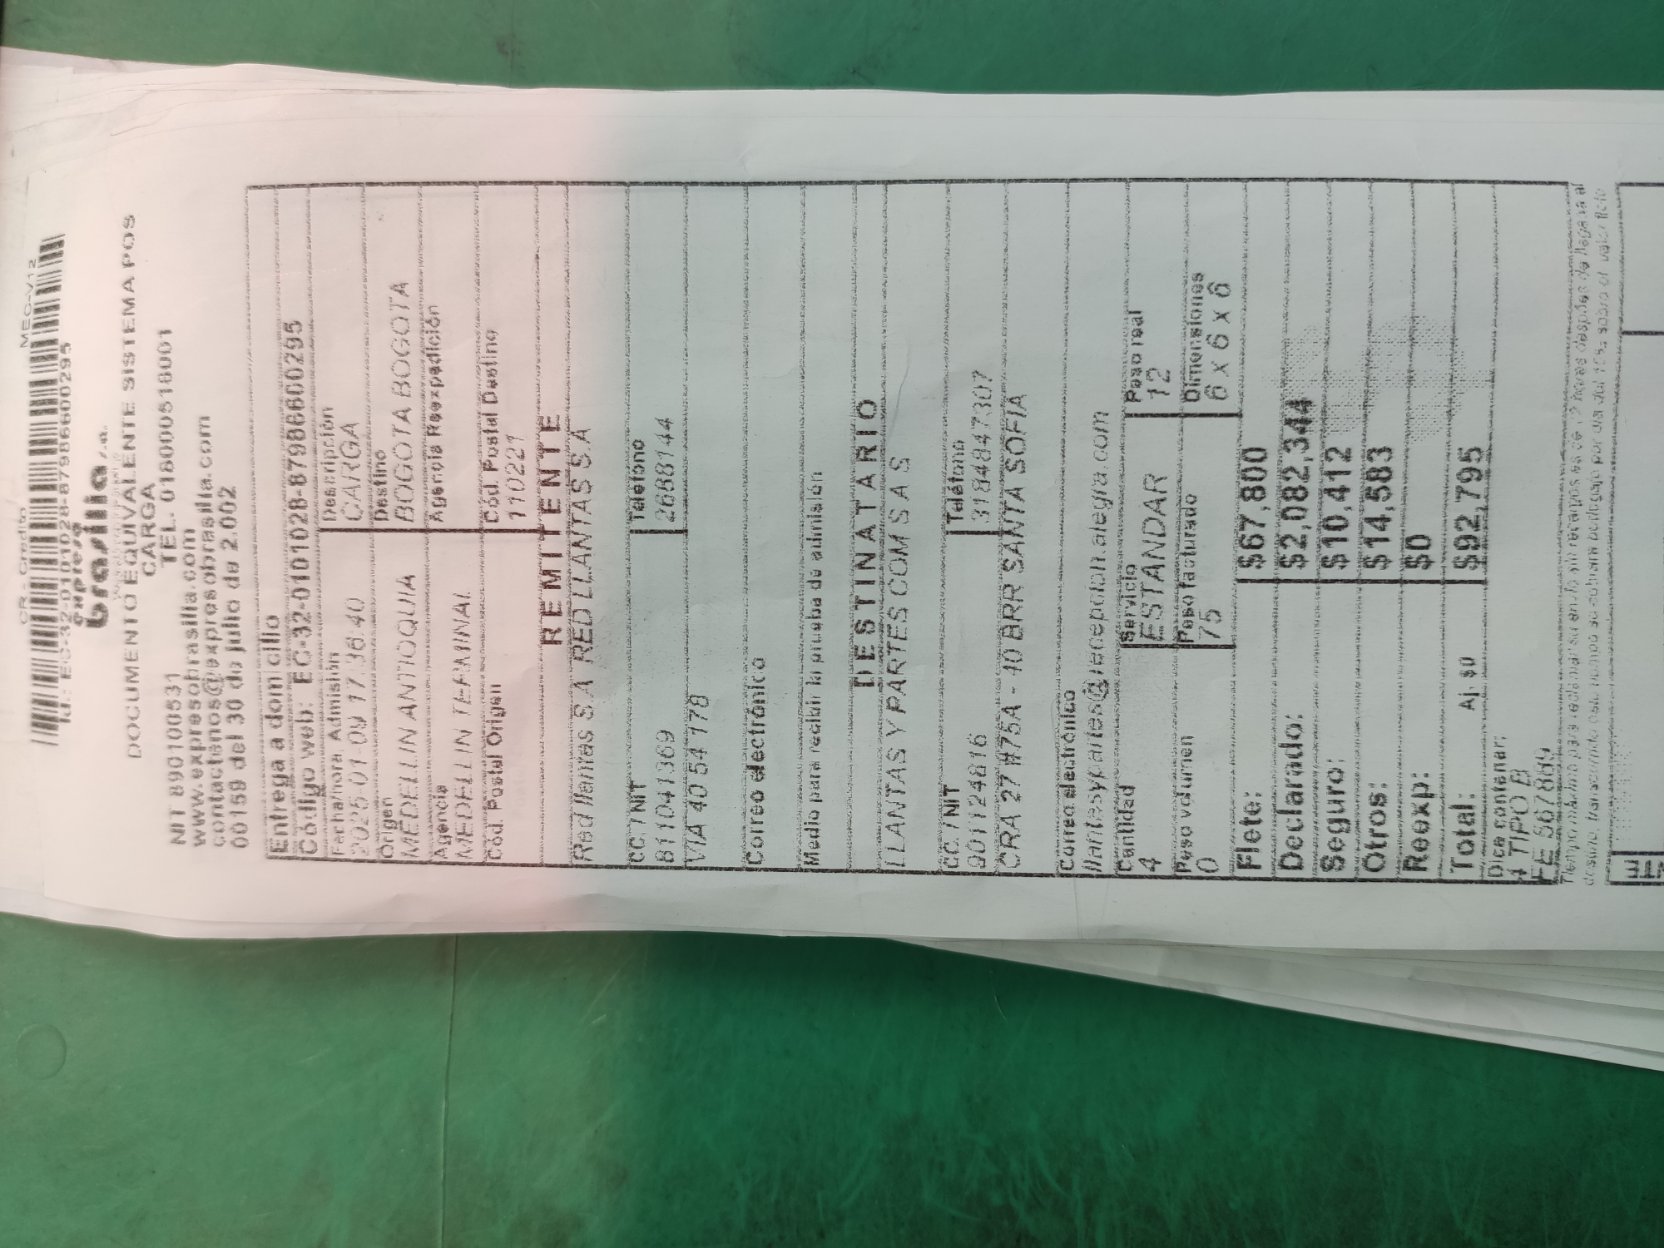 CR - Credito MEC-V12
Id.: EC-32-0101028-8798660029
expreso
brasilia s.a.
DOCUMENTO EQUIVALENTE SISTEMA POS
CARGA
NIT 890100531 TEL. 018000518001
www.expresobrasilia.com
contactenos@expresobrasilia.com
00159 del 30 de julio de 2.002
Entrega a domicilio
Código web: EC-32-0101028-87986600295
Fecha/hora Admisión Descripción
2025-01-09 17:38:40 CARGA
Origen Destino
MEDELLIN ANTIOQUIA BOGOTA BOGOTA
Agencia Agencia Reexpedición
MEDELLIN TERMINAL
Cód. Postal Origen Cód. Postal Destino
110221
REMITENTE
Red llantas S.A RED LLANTAS S.A
CC. / NIT Teléfono
811041369 2688144
VIA 40 54 178
Correo electrónico
Medio para recibir la prueba de admisión
DESTINATARIO
LLANTAS Y PARTES COM S A S
CC. / NIT Teléfono
901124816 3184847307
CRA 27 #75A - 10 BRR SANTA SOFIA
Correo electrónico
llantasypartes@recepcion.alegra.com
Cantidad Servicio Peso real
4 ESTANDAR 12
Peso volumen Peso facturado Dimensiones
0 75 6 x 6 x 6
Flete: $67,800
Declarado: $2,082,344
Seguro: $10,412
Otros: $14,583
Reexp: $0
Total: Aj. $0 $92,795
Dice contener:
4 TIPO B
FE 567889